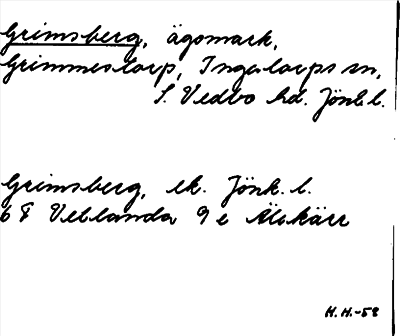 Grimsberg, ägomark,
Grimmestorp, Ingatorps sn,
S. Vedbo hd. Jönk. l.
Grimsberg, ek. Jönk. l.
6 F Vetlanda 9 e Älekärr
H.H.-58